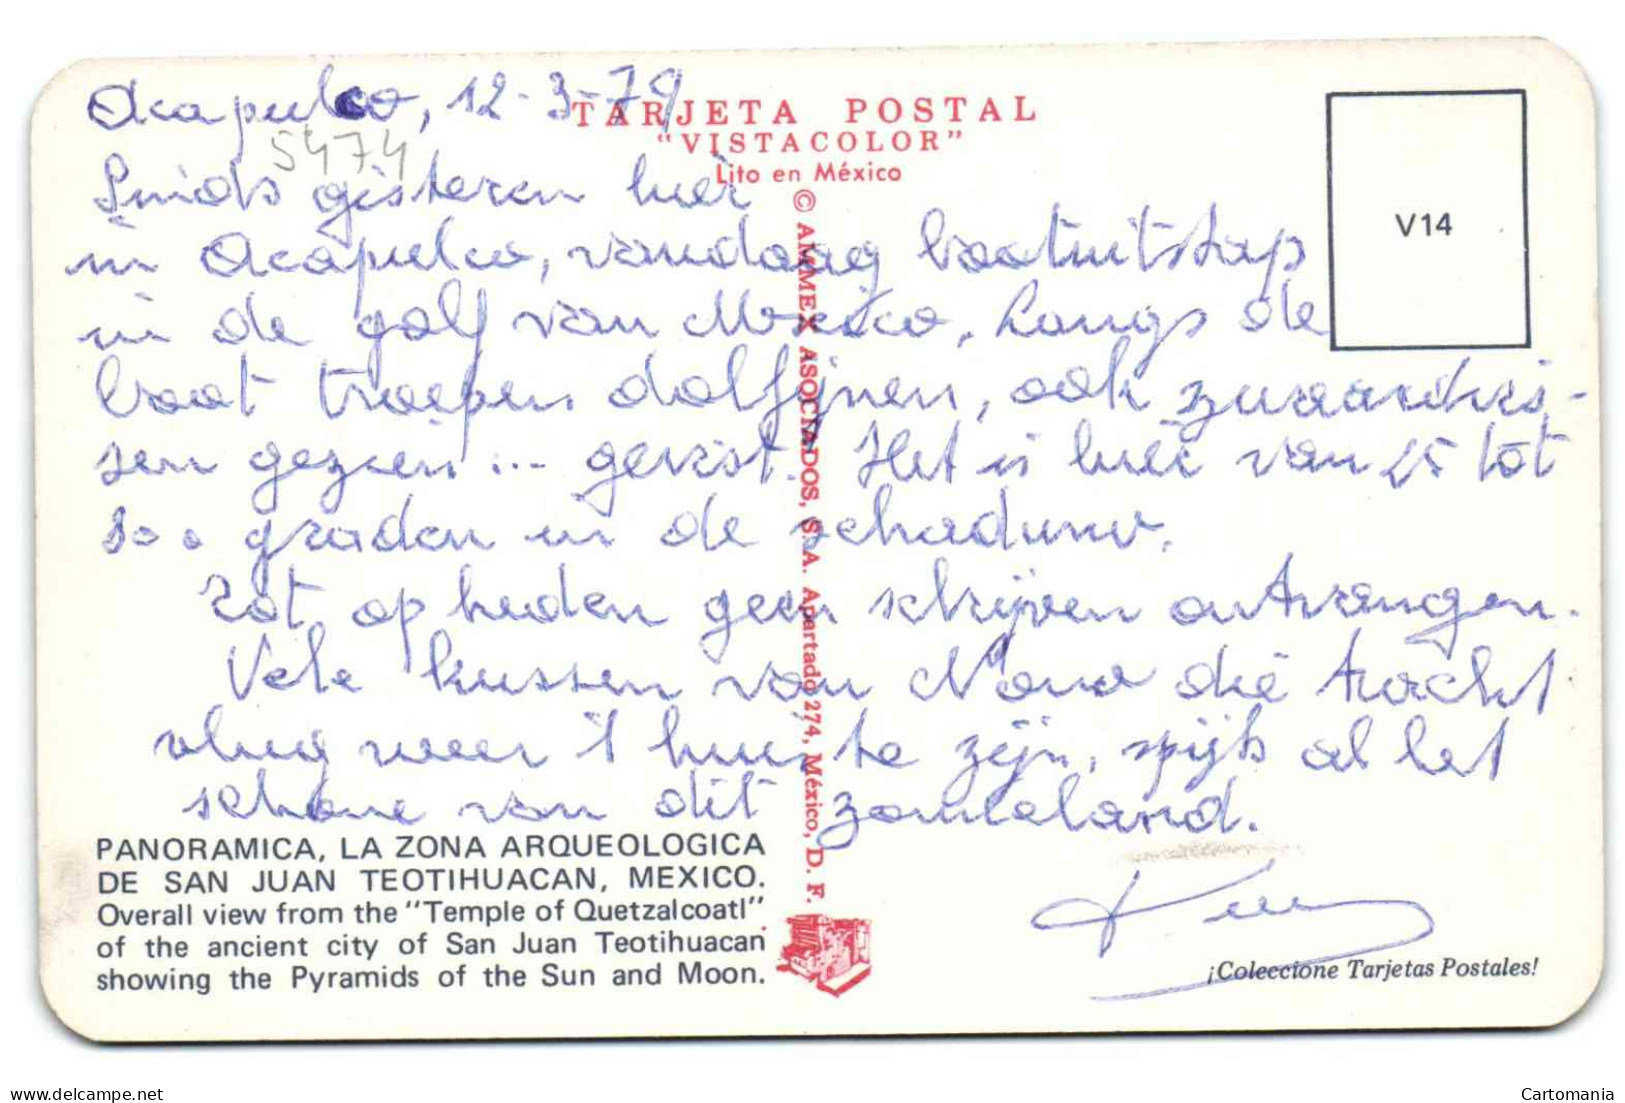 Acapulco, 12-3-79
TARJETA POSTAL
"VISTACOLOR"
Lito en México
5474
Sinds gisteren hier
in Acapulco, vandaag bootuitstap
in de golf van Mexico. Langs de
boot troepen dolfijnen, ook zwaardvis-
sen gezien ... gevist. Het is hier van 25 tot
30° graden in de schaduw.
Tot op heden geen schrijven ontvangen.
Vele kussen van Nono die tracht
vlug weer 't huis te zijn, spijts al het
schone van dit zonneland.
V14
© AMMEX ASOCIADOS, S.A. Apartado 274, México, D. F.
PANORAMICA, LA ZONA ARQUEOLOGICA
DE SAN JUAN TEOTIHUACAN, MEXICO.
Overall view from the "Temple of Quetzalcoatl"
of the ancient city of San Juan Teotihuacan
showing the Pyramids of the Sun and Moon.
¡Coleccione Tarjetas Postales!
https://www.delcampe.net
Cartomania